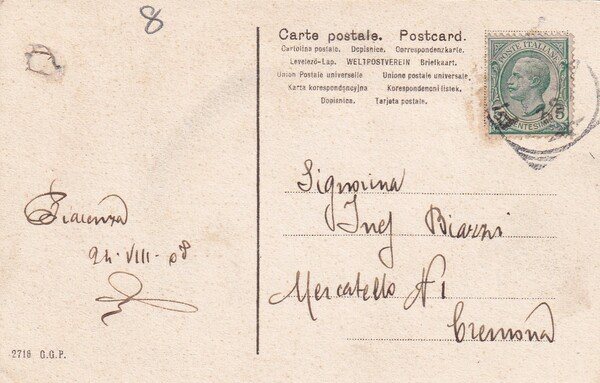 8
Carte postale. Postcard.
Cartolina postale. Dopisnice. Correspondenzkarte.
Levelező-Lap. WELTPOSTVEREIN Briefkaart.
Union Postale universelle Unione postale universale.
Karta korespondencyjna Korespondenční lístek.
Dopisnica. Tarjeta postale.
POSTE ITALIANE
CENTESIMI 5
Signorina
Ines Biazzi
Mercatello N 1
Cremona
Piacenza
24-VIII-08
2716 G.G.P.